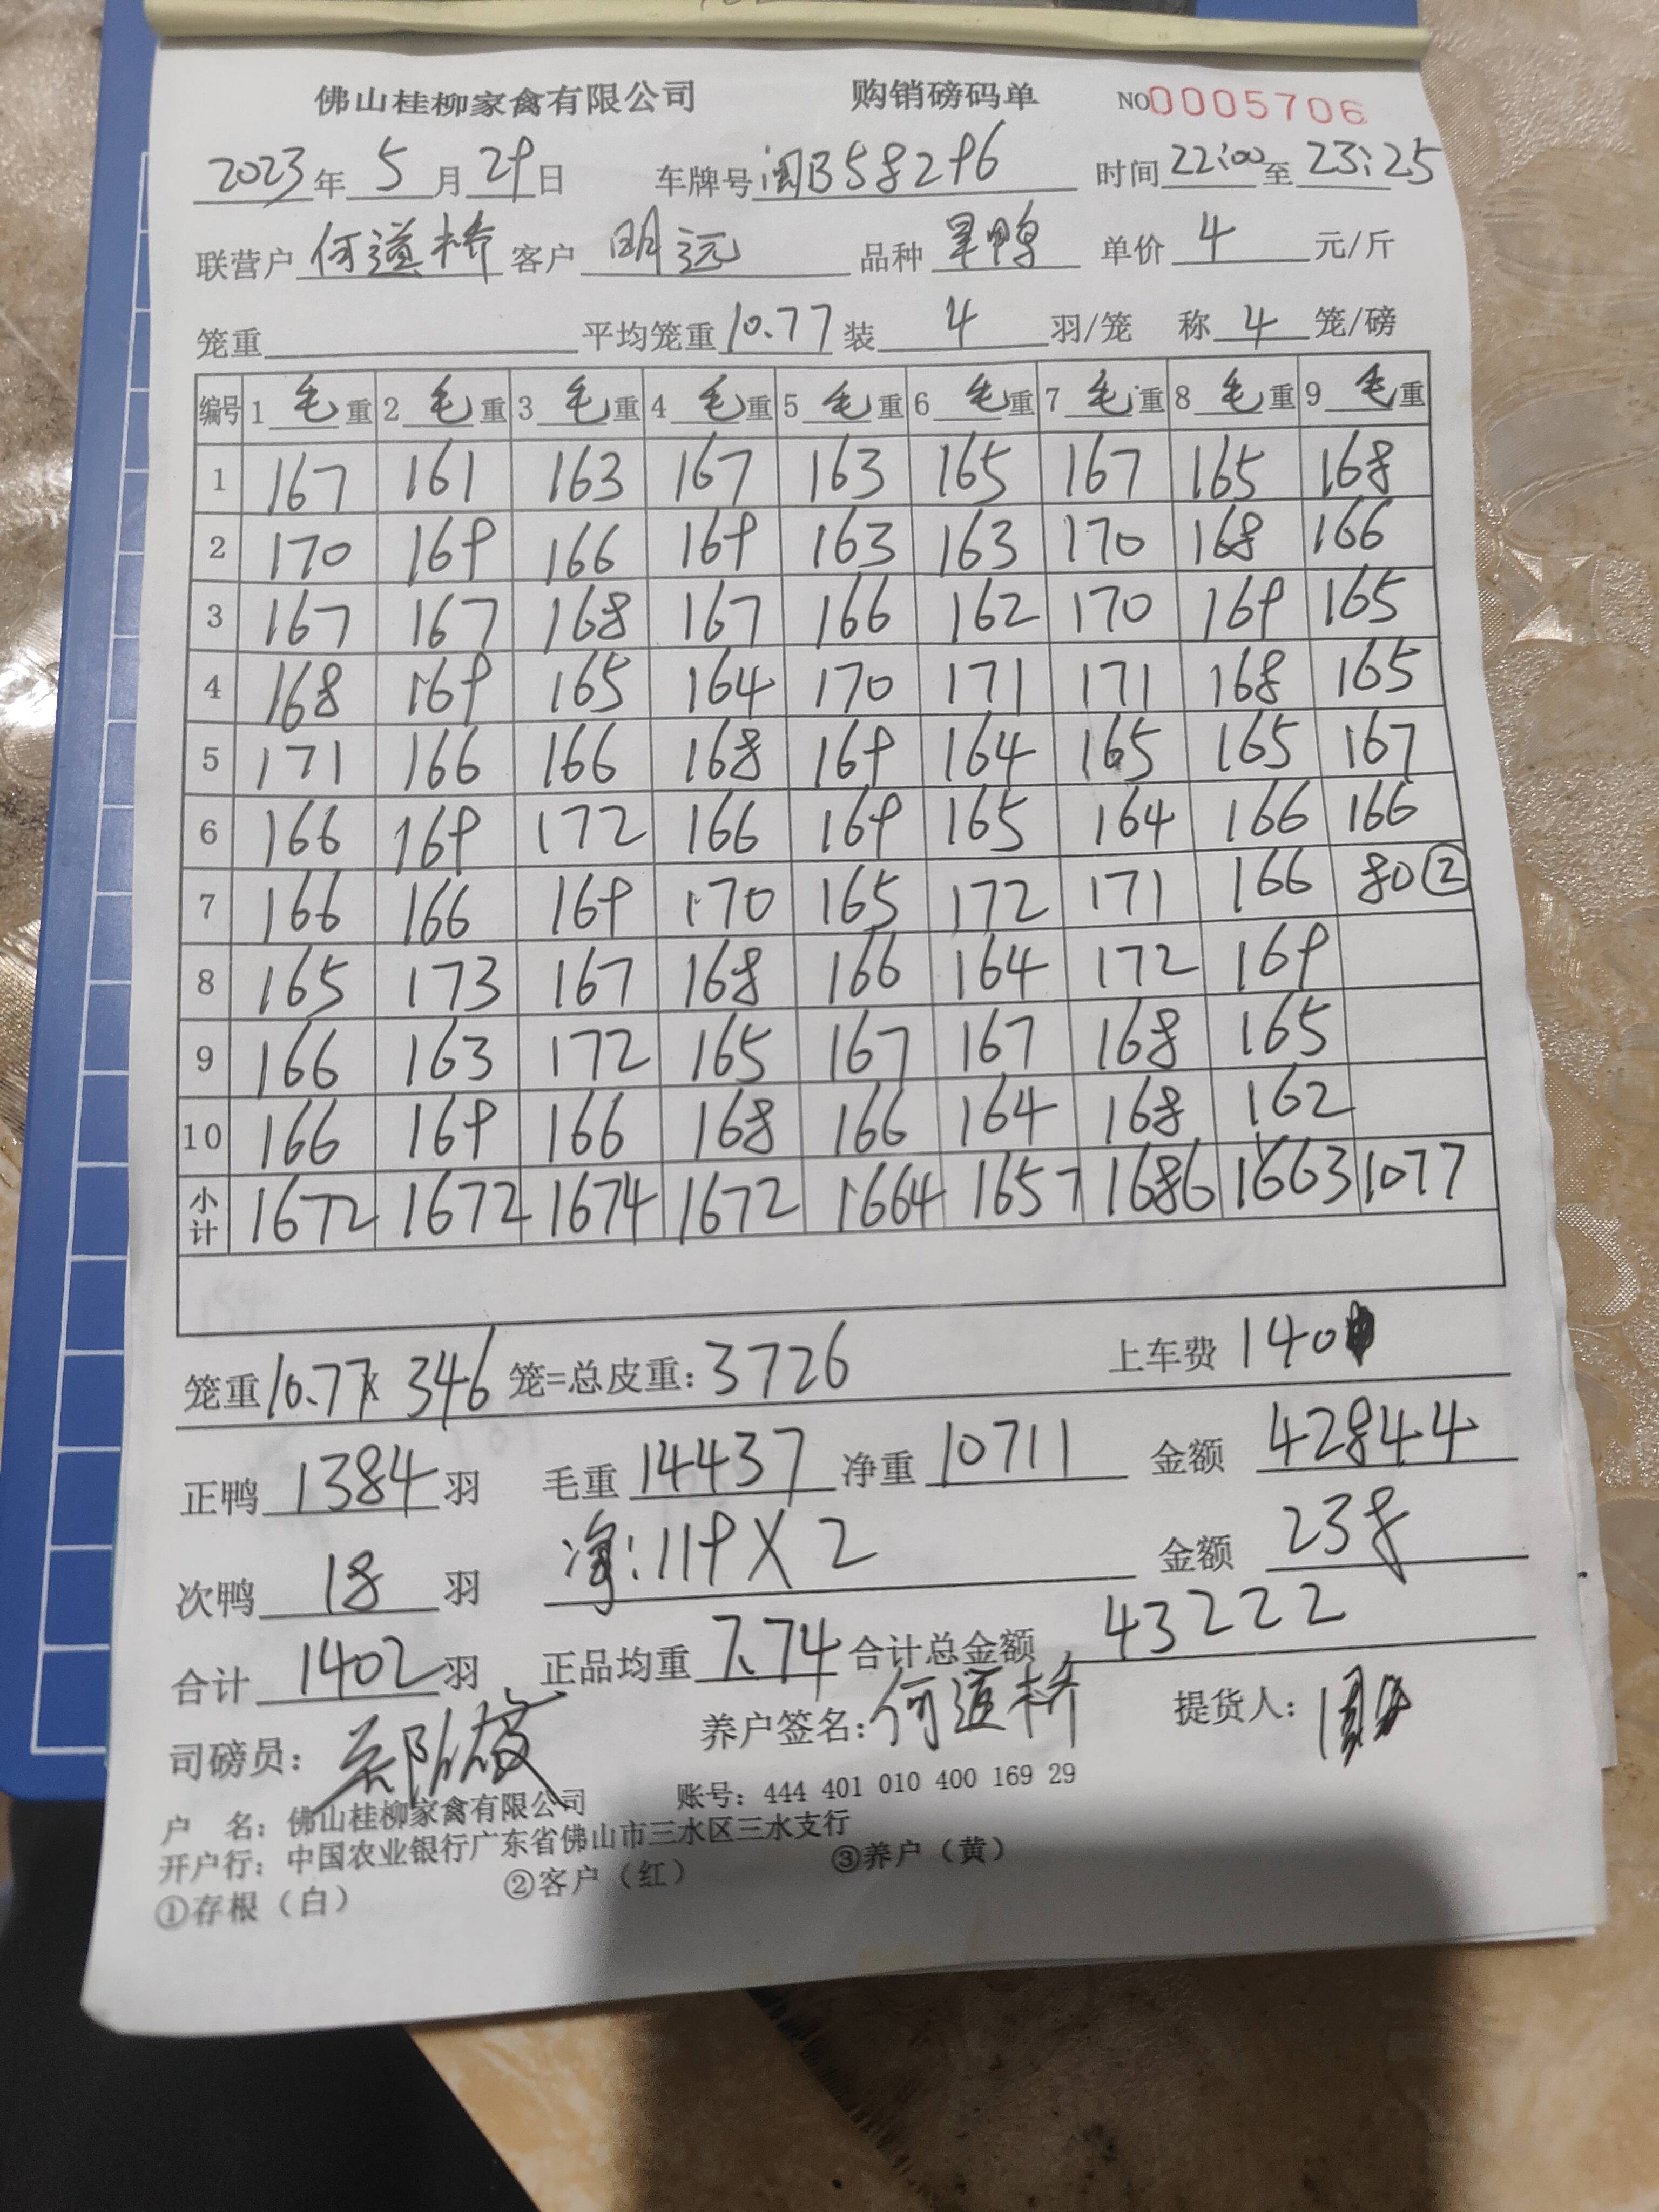 佛山桂柳家禽有限公司 购销磅码单 NO0005706
2023年 5 月 29日 车牌号 闽B58296 时间 22:00 至 23:25
联营户 何道桥 客户 明远 品种 旱鸭 单价 4 元/斤
笼重 平均笼重 10.77 装 4 羽/笼 称 4 笼/磅
编号 1 毛 重 2 毛 重 3 毛 重 4 毛 重 5 毛 重 6 毛 重 7 毛 重 8 毛 重 9 毛 重
1 167 161 163 167 163 165 167 165 168
2 170 169 166 169 163 163 170 168 166
3 167 167 168 167 166 162 170 169 165
4 168 169 165 164 170 171 171 168 165
5 171 166 166 168 169 164 165 165 167
6 166 169 172 166 169 165 164 166 166
7 166 166 169 170 165 172 171 166 80②
8 165 173 167 168 166 164 172 169
9 166 163 172 165 167 167 168 165
10 166 169 166 168 166 164 168 162
小计 1672 1672 1674 1672 1664 1657 1686 1663 1077
笼重 10.77 x 346 笼=总皮重: 3726 上车费 140
正鸭 1384 羽 毛重 14437 净重 10711 金额 42844
次鸭 18 羽 净: 119 X 2 金额 238
合计 1402 羽 正品均重 7.74 合计总金额 43222
司磅员: 养户签名: 何道桥 提货人:
户 名: 佛山桂柳家禽有限公司 账号: 444 401 010 400 169 29
开户行: 中国农业银行广东省佛山市三水区三水支行
①存根（白） ②客户（红） ③养户（黄）